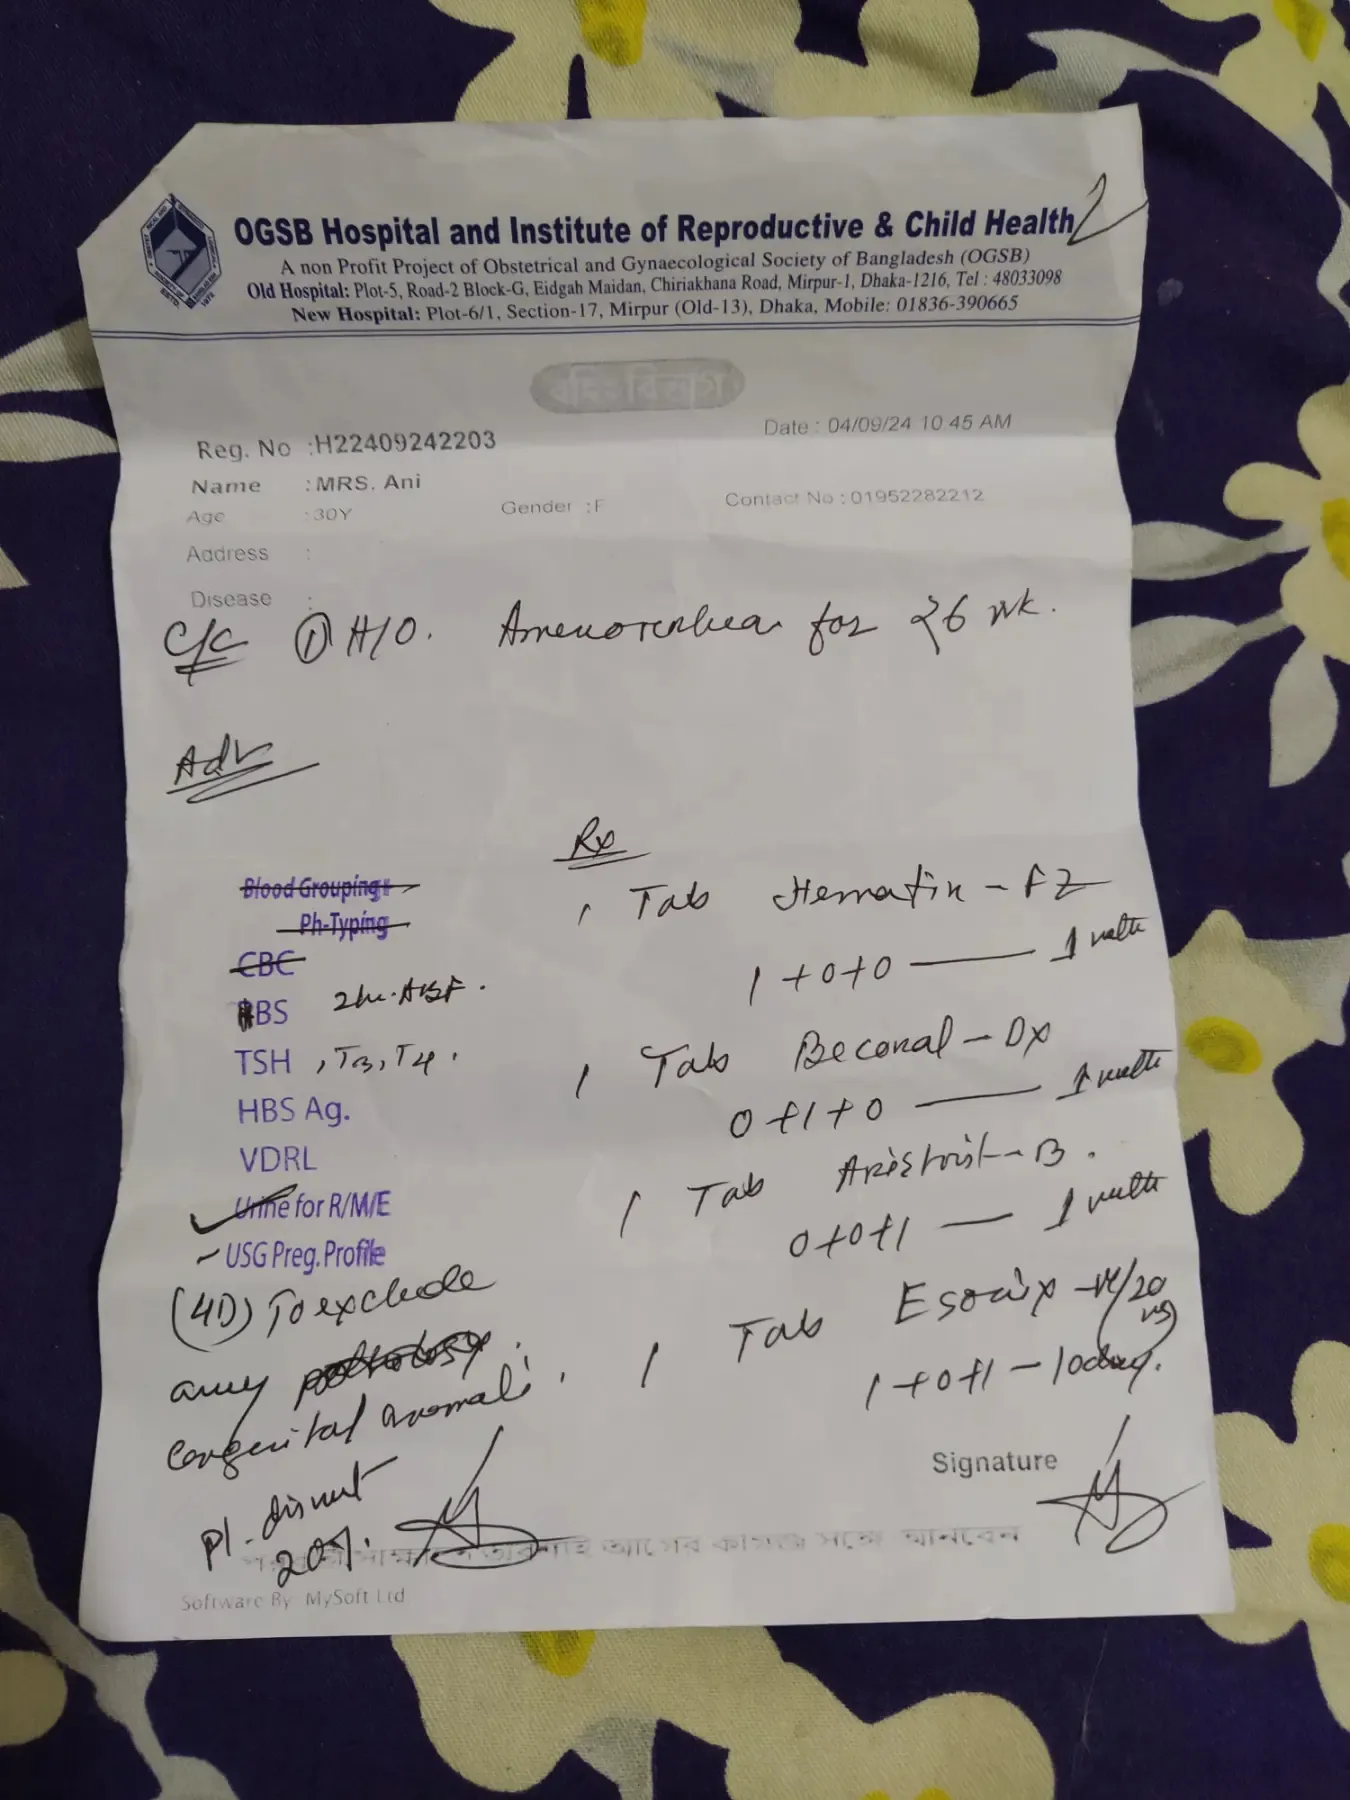 OGSB Hospital and Institute of Reproductive & Child Health
2
A non Profit Project of Obstetrical and Gynaecological Society of Bangladesh (OGSB)
Old Hospital: Plot-5, Road-2 Block-G, Eidgah Maidan, Chiriakhana Road, Mirpur-1, Dhaka-1216, Tel : 48033098
New Hospital: Plot-6/1, Section-17, Mirpur (Old-13), Dhaka, Mobile: 01836-390665
বহিঃবিভাগ
Date : 04/09/24 10:45 AM
Reg. No :H22409242203
Name : MRS. Ani
Age :30Y Gender :F Contact No : 01952282212
Address :
Disease :
C/C ① H/O. Amenorrhea for 26 wk.
Adv
Rx
Blood Grouping+
Ph-Typing
CBC
BS 2hr. ABF.
TSH , T3, T4.
HBS Ag.
VDRL
Urine for R/M/E
USG Preg. Profile
(4D) To exclude
any
congenital anomali.
Pl. 
20%.
Tab Hematin - FZ
1+0+0 — 1
Tab Beconal - Dx
0+1+0 — 1
Tab - B.
0+0+1 — 1
Tab 20
1+0+1 – 10day.
Signature
অবশ্যই আগের কাগজ সঙ্গে আনবেন
Software By MySoft Ltd